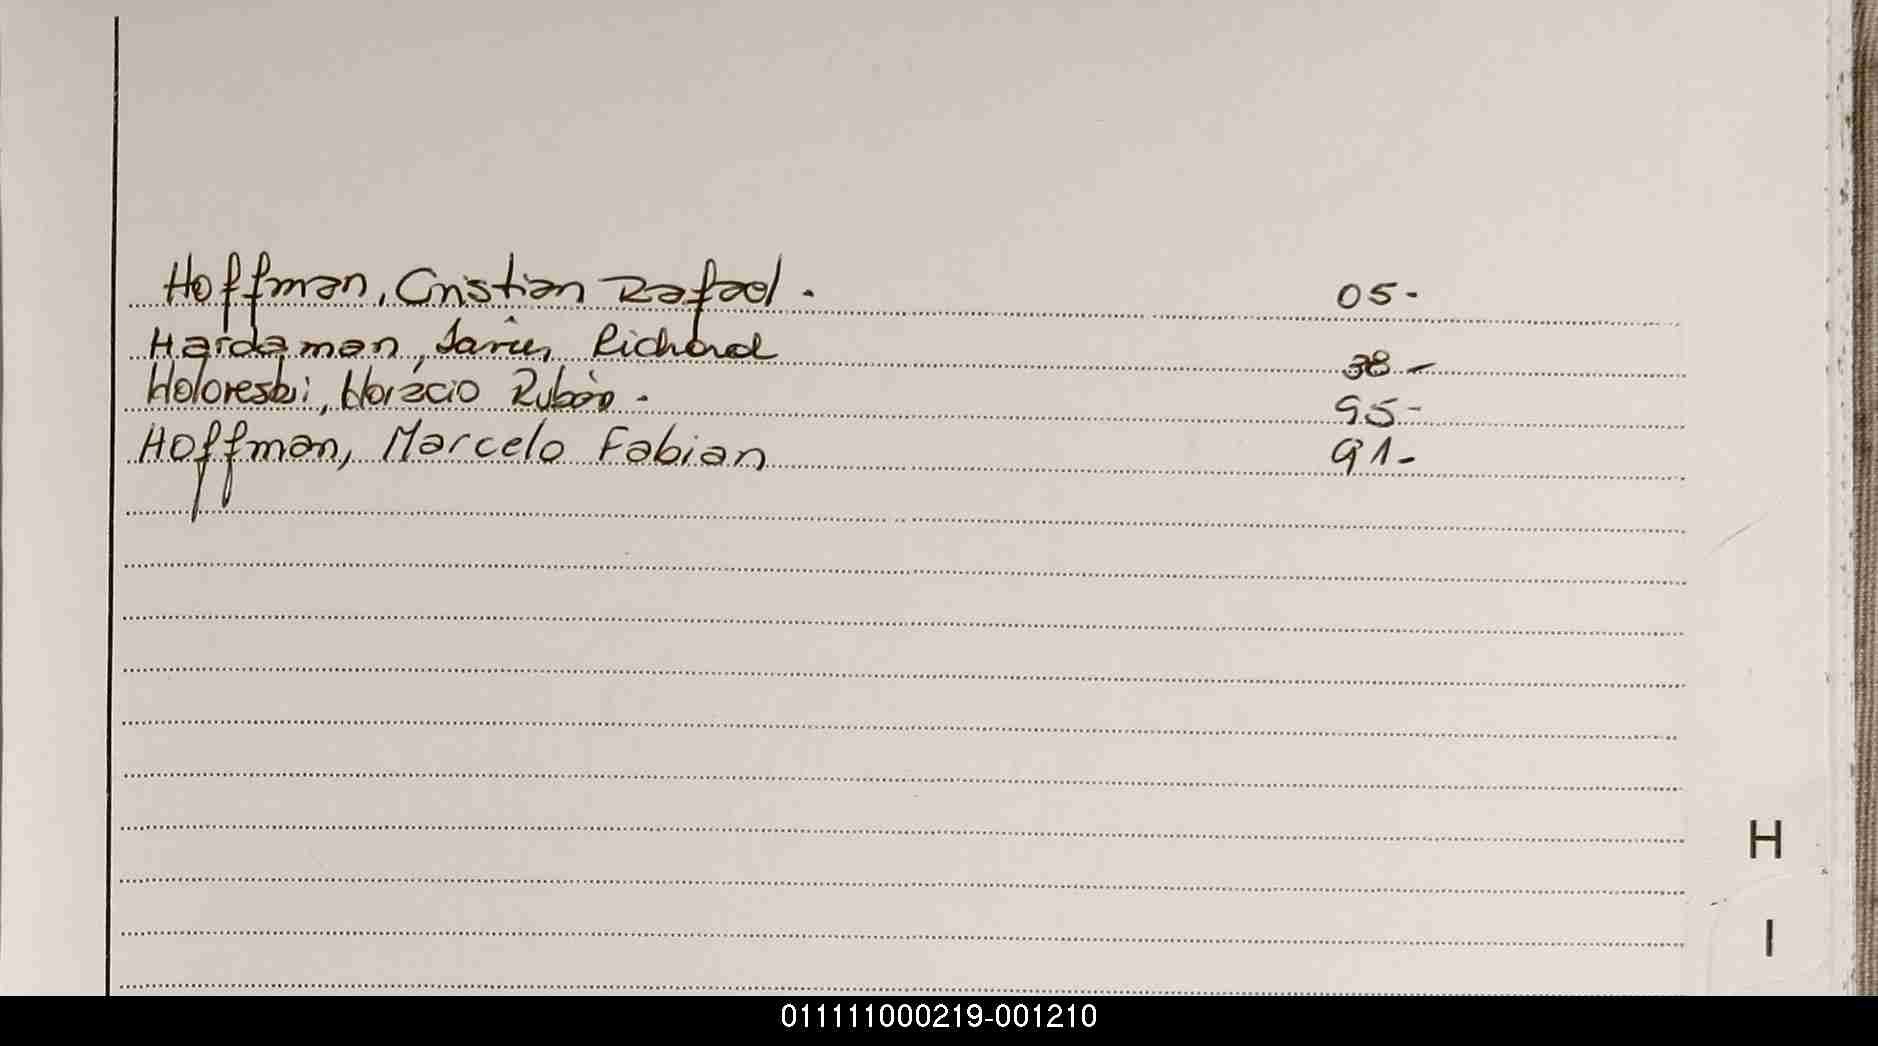 Hoffman, Cristian Rafael. 05-
Hardaman, Javier Richard 38-
Horacio Rubén. 95-
Hoffman, Marcelo Fabian 91-
H
I
011111000219-001210